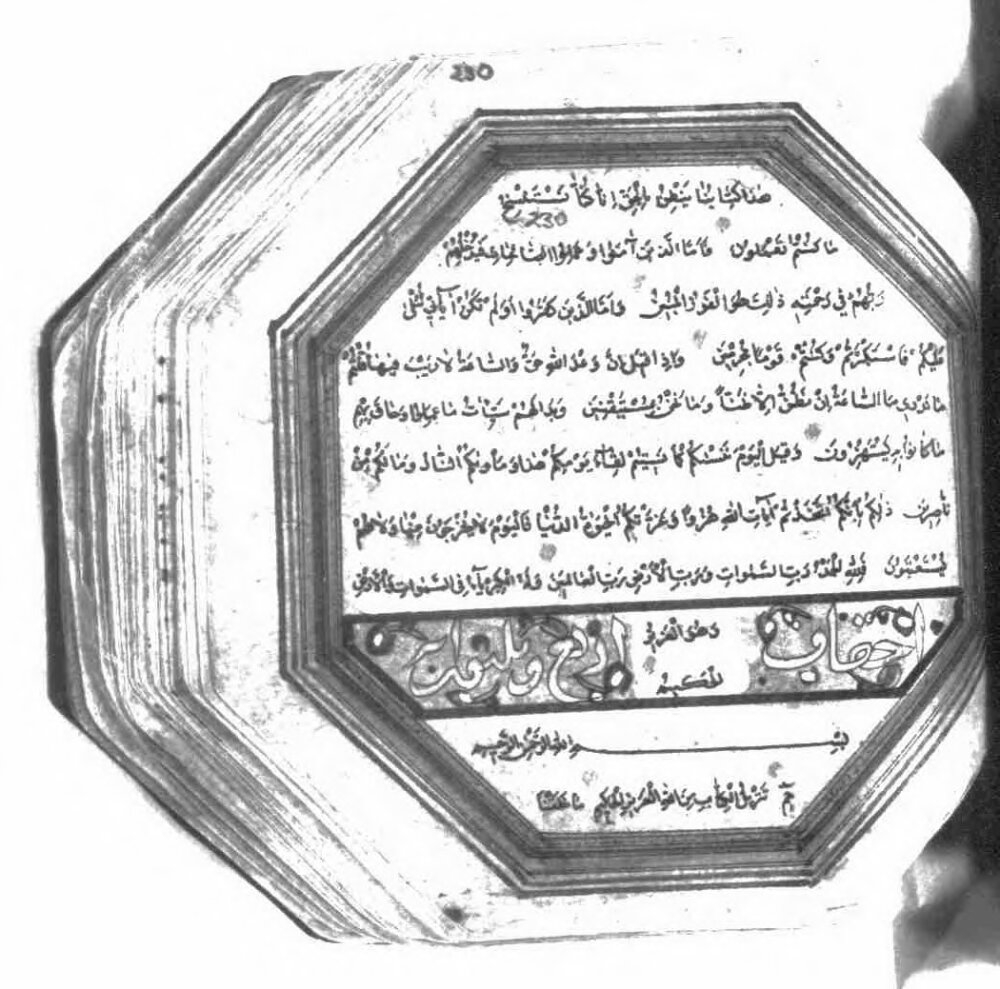 230
هذا كتابنا ينطق بالحق إنا كنا نستنسخ
230
ما كنتم تعملون فأما الذين آمنوا وعملوا الصالحات فيدخلهم
ربهم في رحمته ذلك هو الفوز المبين وأما الذين كفروا أفلم تكن آياتي تتلى
عليكم فاستكبرتم وكنتم قوما مجرمين وإذا قيل إن وعد الله حق والساعة لا ريب فيها قلتم
ما ندري ما الساعة إن نظن إلا ظنا وما نحن بمستيقنين وبدا لهم سيئات ما عملوا وحاق بهم
ما كانوا به يستهزؤن وقيل اليوم ننسيكم كما نسيتم لقاء يومكم هذا ومأويكم النار وما لكم من
ناصرين ذلكم بأنكم اتخذتم آيات الله هزوا وغرتكم الحيوة الدنيا فاليوم لا يخرجون منها ولا هم
يستعتبون فلله الحمد رب السموات ورب الأرض رب العالمين وله الكبرياء في السموات والأرض
الاحقاف وهو العزيز الحكيم اربع وثلثون آية
بسم الله الرحمن الرحيم
حم تنزيل الكتاب من الله العزيز الحكيم ما خلقنا